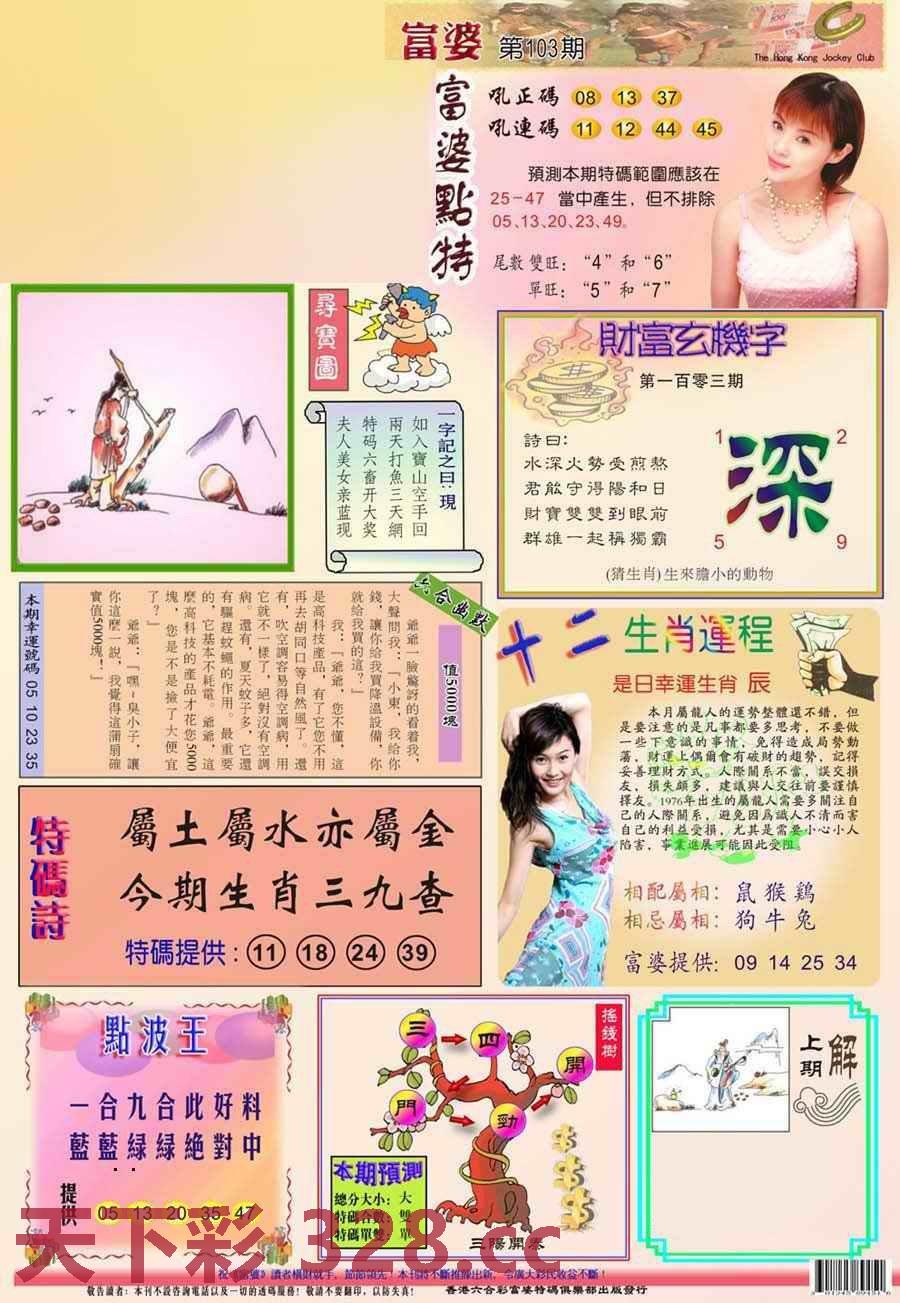 富婆 第103期
The Hong Kong Jockey Club
富婆點特
吼正碼 08 13 37
吼連碼 11 12 44 45
預測本期特碼範圍應該在
25-47 當中產生, 但不排除
05、13、20、23、49。
尾數 雙旺: “4” 和 “6”
單旺: “5” 和 “7”
尋寶圖
一字記之曰: 現
如入寶山空手回
兩天打魚三天網
特码六畜开大奖
夫人美女亲蓝现
財富玄機字
第一百零三期
詩曰:
水深火勢受煎熬
君能守得陽和日
財寶雙雙到眼前
群雄一起稱獨霸
1 2
深
5 9
(猜生肖) 生來膽小的動物
六合幽默
值5000塊
爺爺一臉驚訝的看着我,
大聲問我: 「小東, 我给你
錢, 讓你给我買降溫設備, 你
就给我買的這?」
我: 「爺爺, 您不懂, 這
是高科技產品, 有了它您不用
再去胡同口等自然風了。還
有, 吹空調容易得空調病, 用
它就不一樣了, 絕對沒有空調
病。還有, 夏天蚊子多, 它還
有驅趕蚊蠅的作用。最重要
的, 它基本不耗電。爺爺, 這
麼高科技的產品才花您5000
塊, 您是不是撿了大便宜
了?」
爺爺: 「嘿~臭小子, 讓
你這麼一說, 我覺得這蒲扇確
實值5000塊!」
本期幸運號碼 05 10 23 35
十二生肖運程
是日幸運生肖 辰
本月屬龍人的運勢整體還不錯, 但
是要注意的是凡事都要多思考, 不要做
一些下意識的事情, 免得造成局勢動
蕩, 財運上偶爾會有破財的趨勢, 記得
妥善理財方式。人際關系不當, 誤交損
友, 損失頗多, 建議與人交往前要謹慎
擇友。1976年出生的屬龍人需要多關注自
己的人際關系, 避免因爲識人不清而害
自己的利益受損, 尤其是需要小心小人
陷害, 事業進展可能因此受阻。
相配屬相: 鼠 猴 鷄
相忌屬相: 狗 牛 兔
富婆提供: 09 14 25 34
特碼詩
屬土屬水亦屬金
今期生肖三九查
特碼提供: 11 18 24 39
點波王
一合九合此好料
藍藍綠綠絕對中
提供 05 13 20 35 47
搖錢樹
三 四
開
門 勁
本期預測
總分大小: 大
特碼合數: 雙
特碼單雙: 單
三陽開泰
上期解
天下彩 328.cc
祝《富婆》讀者橫財就手, 節節領先! 本刊將不斷推陳出新, 令廣大彩民收益不斷!
敬告讀者: 本刊不設咨詢電話以及一切的透碼服務! 敬請不要翻印, 以防失真! 香港六合彩富婆特碼俱樂部出版發行